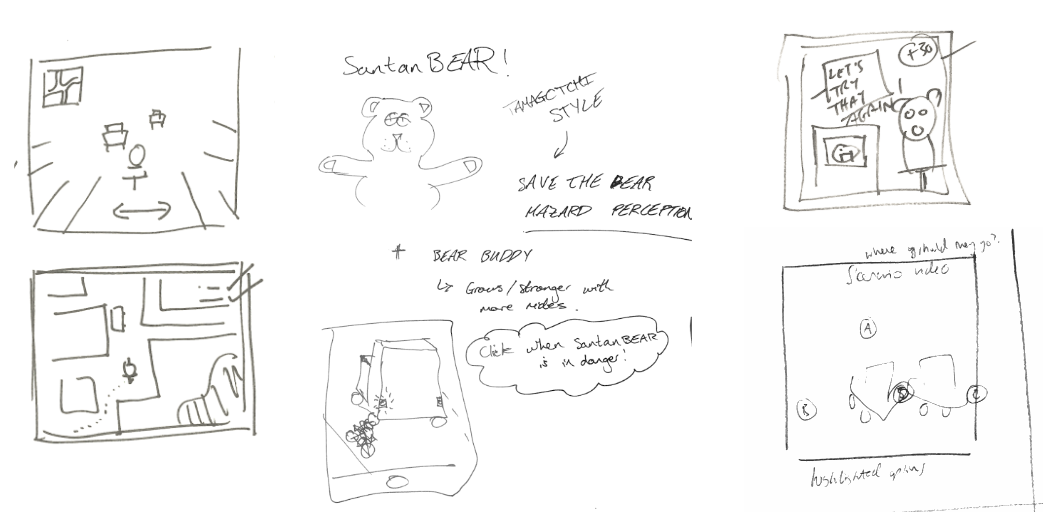 SantanBEAR!
TAMAGOTCHI
STYLE
SAVE THE BEAR
HAZARD PERCEPTION
+ BEAR BUDDY
↳ Grows/stronger with
more rides.
Click when SantanBEAR
is in danger!
+30
LET'S
TRY
THAT
AGAIN!
where should they go?
Scenario video
A
B
D
C
highlighted options